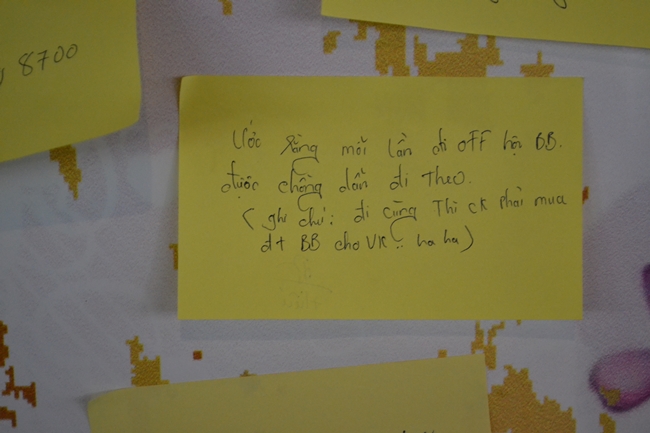 8700
Ước rằng mỗi lần đi OFF hội BB.
được chồng dẫn đi Theo.
(ghi chú: đi cùng Thì CK phải mua
đt BB cho VK !! ha ha)